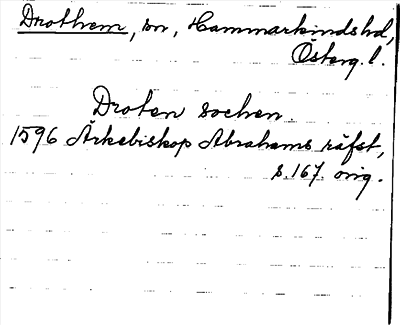 Drothem, sn, Hammarkindshd,
Österg. l.
Droten sochen.
1596 Ärkebiskop Abrahams räfst,
s. 167. orig.